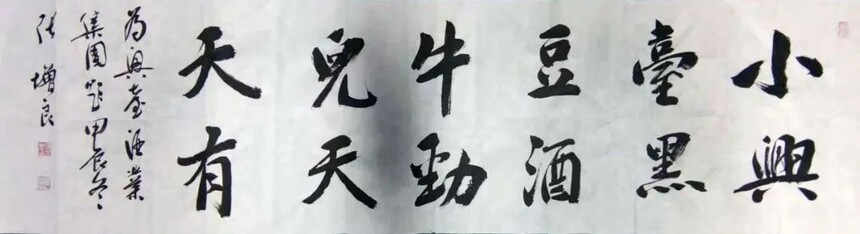 小興
臺黑
豆酒
牛勁
兒天
天有
為興臺酒業
集團題甲辰冬
張增良